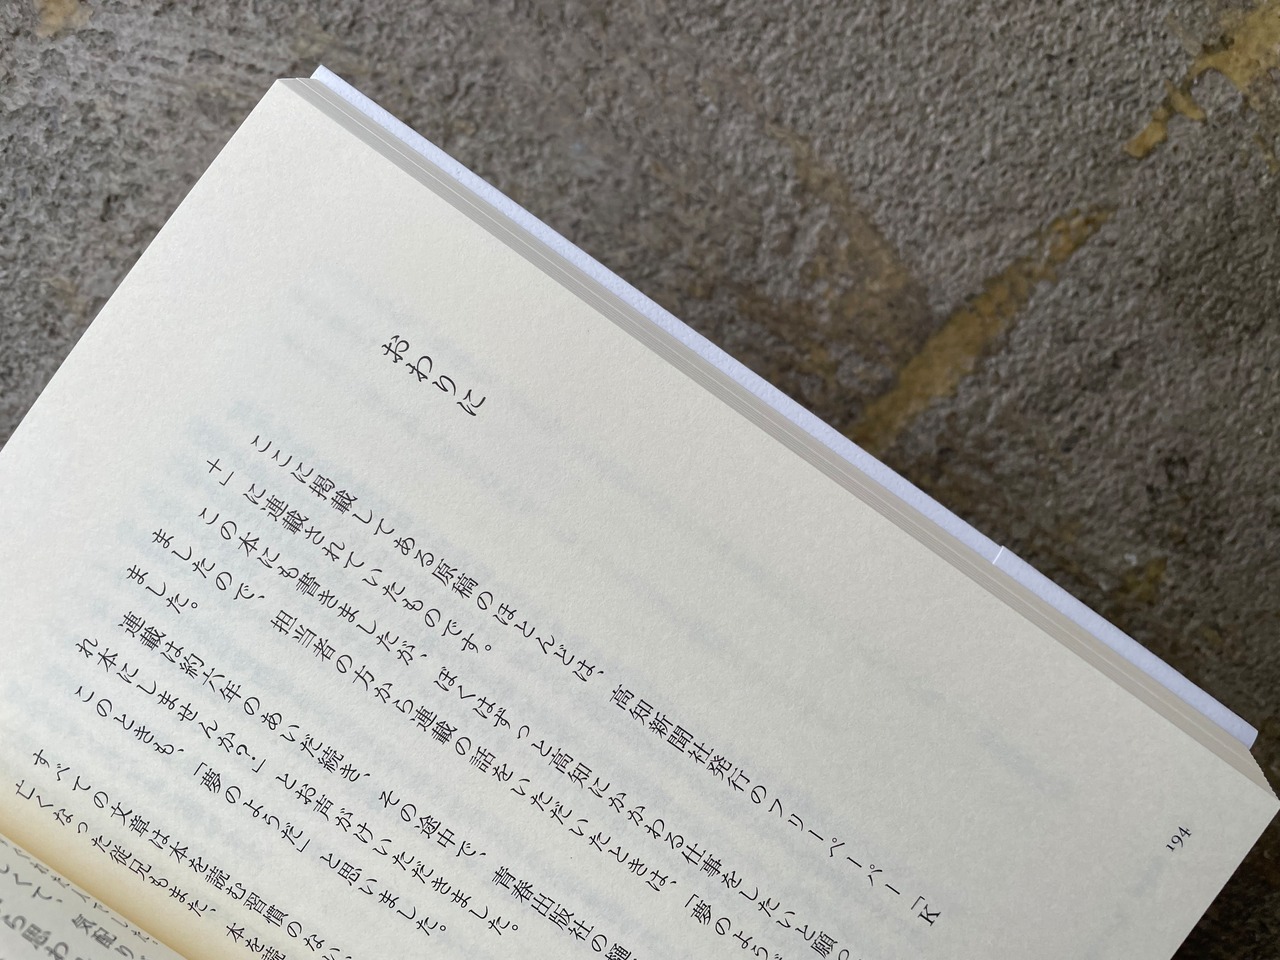 おわりに
ここに掲載してある原稿のほとんどは、高知新聞社発行のフリーペーパー「K
十」に連載されていたものです。
この本にも書きましたが、ぼくはずっと高知にかかわる仕事をしたいと願っ
ましたので、担当者の方から連載の話をいただいたときは、「夢のよう
ました。
連載は約六年のあいだ続き、その途中で、青春出版社の
れ本にしませんか?」とお声がけいただきました。
このときも、「夢のようだ」と思いました。
すべての文章は本を読む習慣のない
亡くなった従兄もまた、本を読
194
くて、気配り
ら思わ